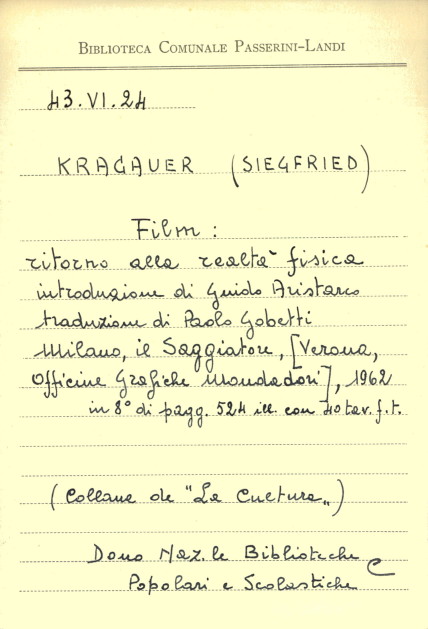 BIBLIOTECA COMUNALE PASSERINI-LANDI
43.VI.24
KRAGAUER (SIEGFRIED)
Film :
ritorno alla realtà fisica
introduzione di Guido Aristarco
traduzione di Paolo Gobetti
Milano, il Saggiatore, [Verona,
Officine Grafiche Mondadori], 1962
in 8° di pagg. 524 ill. con 40 tav. f.t.
(Collana de "La Cultura„)
Dono Naz.le Biblioteche C
Popolari e Scolastiche